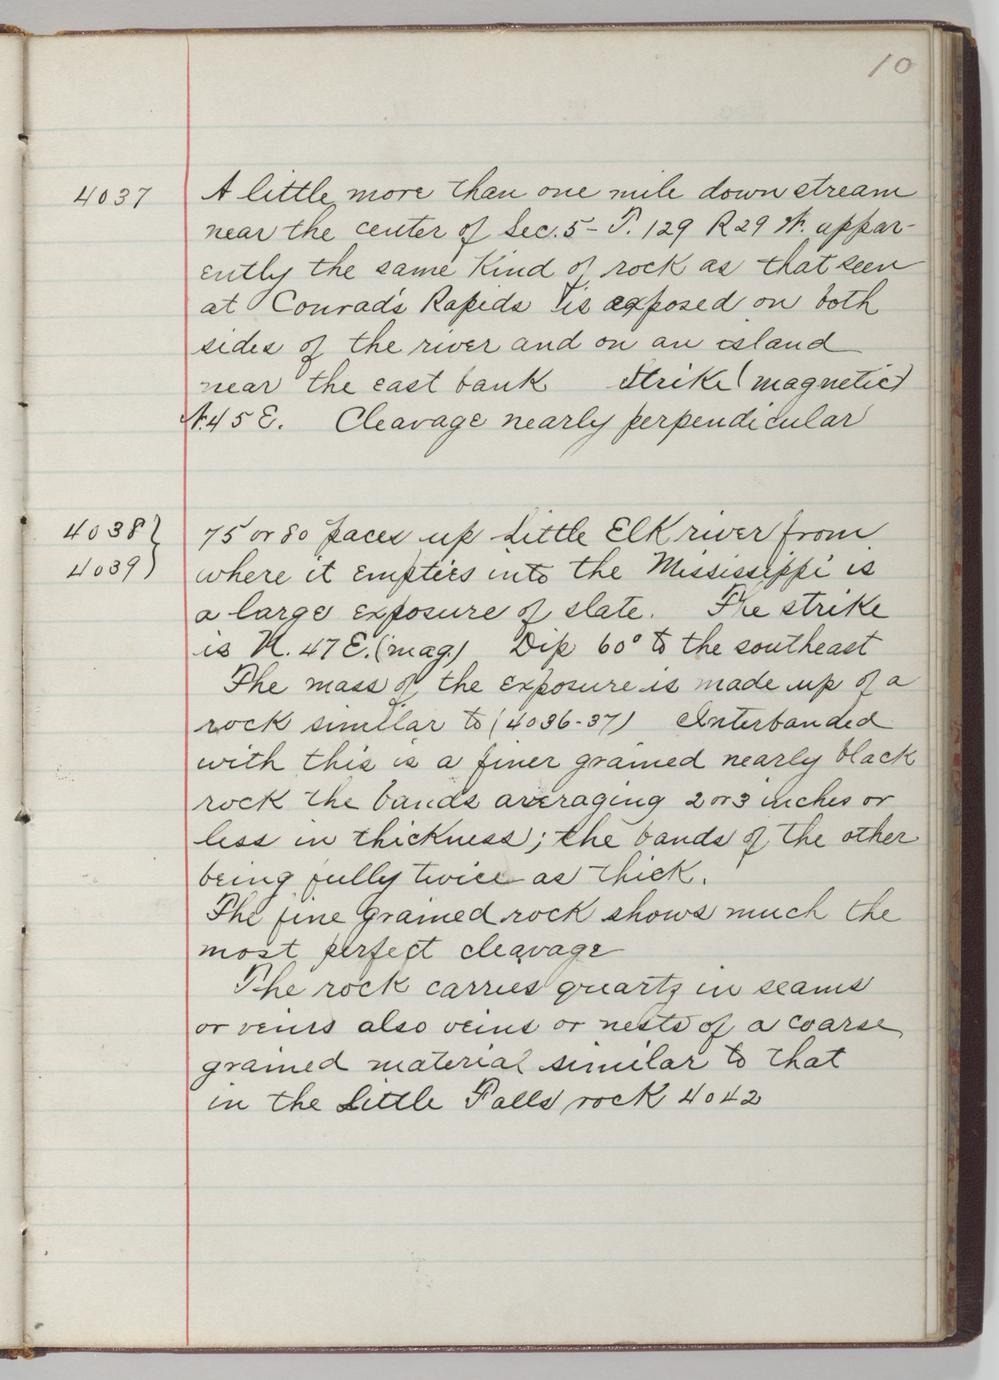 10
4037 A little more than one mile down stream
near the center of Sec. 5 - T. 129 R 29 W. appar-
ently the same kind of rock as that seen
at Conrad's Rapids is exposed on both
sides of the river and on an island
near the east bank Strike (magnetic)
N. 45 E. Cleavage nearly perpendicular
4038} 75 or 80 paces up Little Elk river from
4039} where it empties into the Mississippi is
a large exposure of slate. The strike
is N. 47 E. (mag.) Dip 60° to the southeast
The mass of the exposure is made up of a
rock similar to (4036-37) Interbanded
with this is a finer grained nearly black
rock the bands averaging 2 or 3 inches or
less in thickness; the bands of the other
being fully twice as thick.
The fine grained rock shows much the
most perfect cleavage
The rock carries quartz in seams
or veins also veins or nests of a coarse
grained material similar to that
in the Little Falls rock 4042